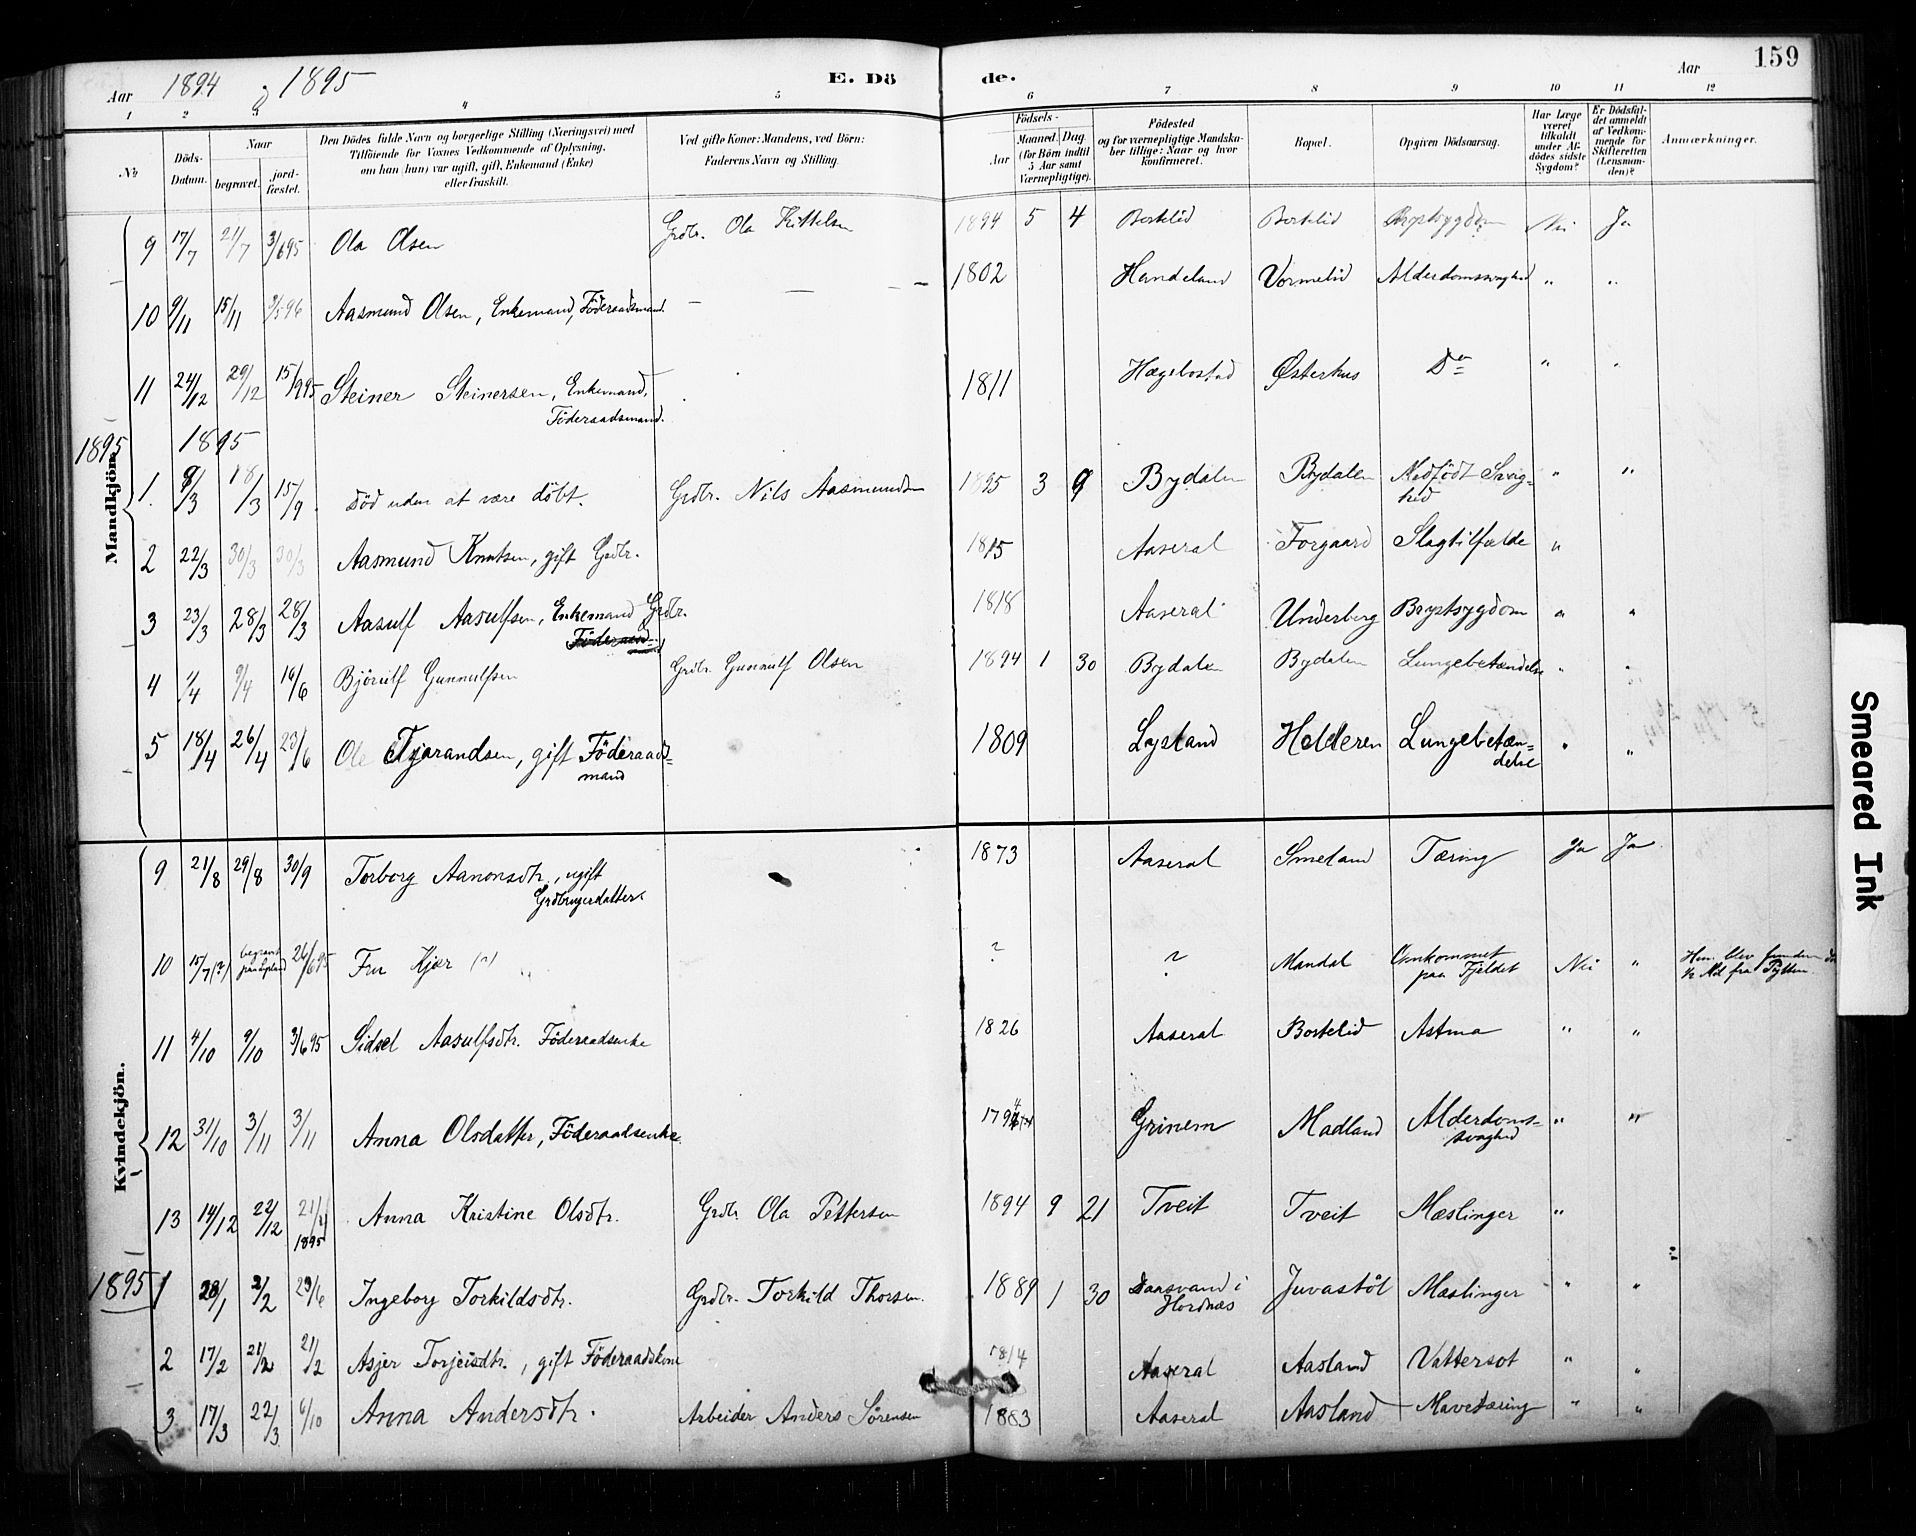 159
Aar 1894 og 1895 E. Dö de. Aar
1 2 3 4 5 6 7 8 9 10 11 12
No Döds-Datum. Naar begravet. jord-fæstet. Den Dödes fulde Navn og borgerlige Stilling (Næringsvei) med Tilföiende for Voxnes Vedkommende af Oplysning, om han (hun) var ugift, gift, Enkemand (Enke) eller fraskilt. Ved gifte Koner: Mandens, ved Börn: Faderens Navn og Stilling. Födsels- Aar Maaned. Dag. (for Börn indtil 5 Aar samt Værnepligtige). Födested og for værnepligtige Mandskaber tillige: Naar og hvor konfirmeret. Bopæl. Opgiven Dödsaarsag. Har Læge været tilkaldt under Afdödes sidste Sygdom? Er Dödsfaldet anmeldt af Vedkommende for Skifteretten (Lensmanden)? Anmærkninger.
Mandkjön.
9 17/7 21/7 3/6 95 Ola Olsen Grdbr. Ola Kittelsen 1894 5 4 Bortelid Bortelid Brystsygdom Nei Ja
10 9/11 15/11 3/5 96 Aasmund Olsen, Enkemand, Föderaadsmand. — — — 1802 Handeland Vormelid Alderdomssvaghed " "
11 24/12 29/12 15/9 95 Steiner Steinersen, Enkemand, 1811 Hægebostad Østerhus Do " "
Föderaadsmand.
1895 1895
1. 9/3 18/3 15/9 död uden at være döbt. Grdbr. Nils Aasmundsen 1895 3 9 Bydalen Bydalen Medfödt Svag- " "
hed
2 22/3 30/3 30/3 Aasmund Knutsen, gift Grdbr. 1815 Aaseral Forgaard Slagtilfælde "
3 23/3 28/3 28/3 Aasulf Aasulfsen, Enkemand Grdbr. 1818 Aaseral Underberg Brystsygdom " "
4 1/4 9/4 16/6 Björulf Gunnulfsen Grdbr. Gunnulf Olsen 1894 1 30 Bydalen Bydalen Lungebetændelse " "
5 18/4 26/4 23/6 Ole Tjorandsen, gift Föderaads- 1809 Lysland Helderen Lungebetæn- " "
mand delse
Kvindekjön.
9 21/8 29/8 30/9 Torborg Aanonsdtr., ugift 1873 Aaseral Smeland Tæring Ja Ja
Grdbrugerdatter.
10 15/7 (?) begravet paa Lysland 26/6 95 Fru Kjær (?) ? ? Mandal Omkommet Nei " Hun blev funden
paa Fjeldet 1/2 Mil fra
11 4/10 9/10 3/6 95 Sidsel Aasulfsdtr. Föderaadsenke 1826 Aaseral Bortelid Astma " "
12 31/10 3/11 3/11 Anna Olsdatter, Föderaadsenke 1794 Grinem Madland Alderdoms- " "
svaghed
13 14/12 22/12 21/4 1895 Anna Kristine Olsdtr. Grdbr Ola Pettersen 1894 9 21 Tveit Tveit Mæslinger "
1895 1 28/1 2/2 23/6 Ingeborg Torkildsdtr. Grdbr. Torkild Thorsen. 1889 1 30 Daasvand i Juvastöl Mæslinger " "
Hordnæs
2 17/2 21/2 21/2 Asjer Torjeisdtr., gift Föderaadskone 1814 Aaseral Aasland Vattersot " "
3 17/3 22/3 6/10 Anna Andersdtr. Arbeider Anders Sørensen 1883 Aaseral Aasland Mavetæring " "
Smeared Ink